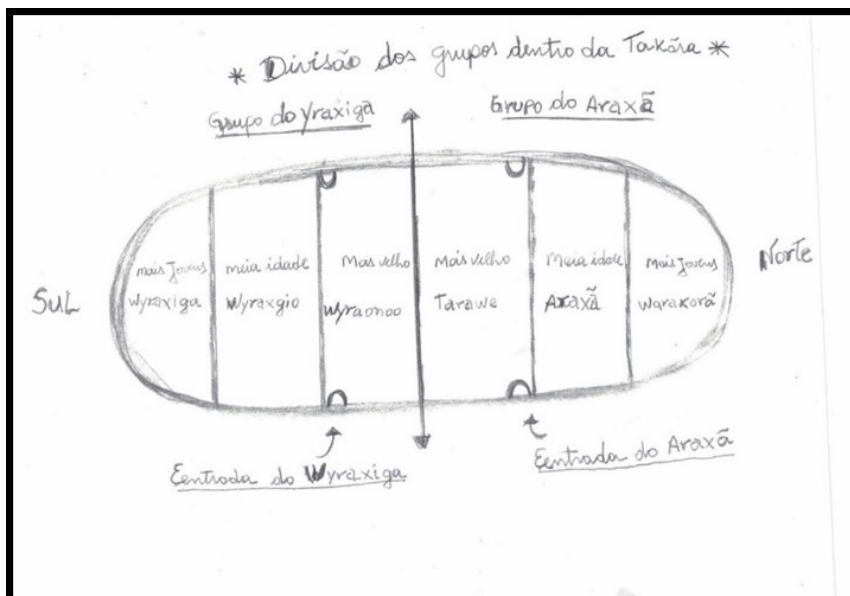 * Divisão dos grupos dentro da Takãra *
Grupo do yraxiga
Grupo do Araxã
mais Jovens
Wyraxiga
meia idade
Wyraxgio
Mais velho
Wyraonoo
Mais velho
Tarawe
Meia idade
Araxã
Mais Jovens
Warakorã
SUL
Norte
Eentrada do Wyraxiga
Eentrada do Araxã